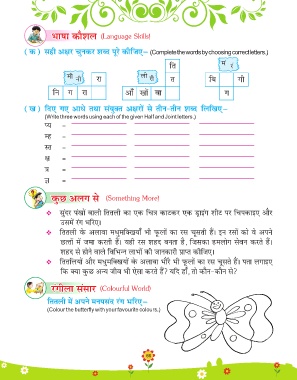 भाषा कौशल (Language Skills)
( क ) सही अक्षर चुनकर शब्द पूरे कीजिए– (Complete the words by choosing correct letters.)
ति
रा त बि गी
नि ग रा आँ खों खा ग
( ख ) दिए गए आधे तथा संयुक्त अक्षरों से तीन-तीन शब्द लिखिए–
(Write three words using each of the given Half and Joint letters.)
प्य –
न्ह –
स्त –
क्ष –
त्र –
ज्ञ –
कुछ अलग से (Something More!)
❖ सुंदर पंखों वाली तितली का एक चित्र काटकर एक ड्राइंग शीट पर चिपकाइए और
उसमें रंग भरिए।
❖ तितली के अलावा मधुमक्खियाँ भी फूलों का रस चूसती हैं। इन रसों को वे अपने
छत्तों में जमा करती हैं। यही रस शहद बनता है, जिसका हमलोग सेवन करते हैं।
शहद से होने वाले विभिन्न लाभों की जानकारी प्राप्त कीजिए।
❖ तितलियों और मधुमक्खियों के अलावा भौंरे भी फूलों का रस चूसते हैं। पता लगाइए
कि क्या कुछ अन्य जीव भी ऐसा करते हैं? यदि हाँ, तो कौन-कौन से?
रंगीला संसार (Colourful World)
तितली में अपने मनपसंद रंग भरिए–
(Colour the butterfly with your favourite colours.)